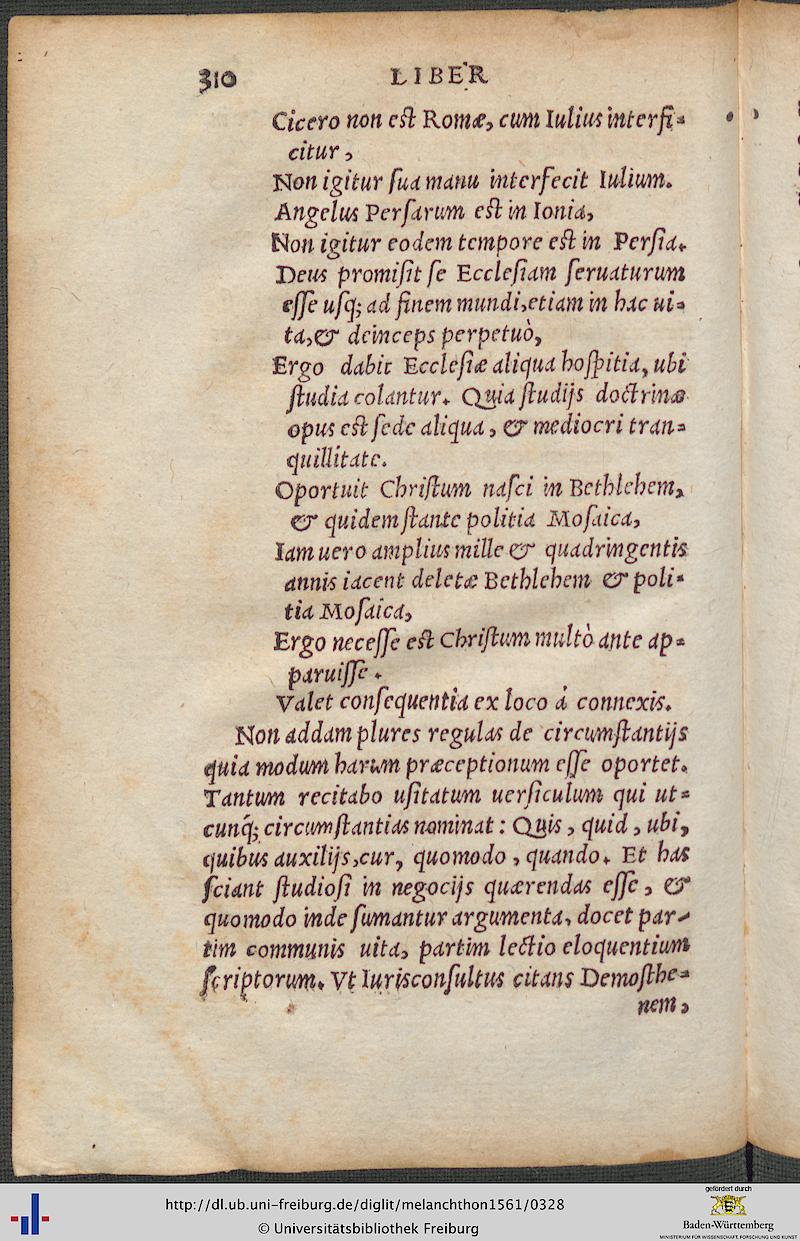 310 LIBER
Cicero non eſt Romæ, cum Iulius interfi-
citur,
Non igitur ſua manu interfecit Iulium.
Angelus Perſarum eſt in Ionia,
Non igitur eodem tempore eſt in Perſia.
Deus promiſit ſe Eccleſiam ſeruaturum
eſſe uſq; ad finem mundi, etiam in hac ui-
ta, & deinceps perpetuò,
Ergo dabit Eccleſiæ aliqua hoſpitia, ubi
ſtudia colantur. Quia ſtudijs doctrinæ
opus eſt ſede aliqua, & mediocri tran-
quillitate.
Oportuit Chriſtum naſci in Bethlehem,
& quidem ſtante politia Moſaica,
Iam uero amplius mille & quadringentis
annis iacent deletæ Bethlehem & poli-
tia Moſaica,
Ergo neceſſe eſt Chriſtum multò ante ap-
paruiſſe.
Valet conſequentia ex loco á connexis.
Non addam plures regulas de circumſtantijs
quia modum harum præceptionum eſſe oportet.
Tantum recitabo uſitatum uerſiculum qui ut-
cunq́; circumſtantias nominat: Quis, quid, ubi,
quibus auxilijs, cur, quomodo, quando. Et has
ſciant ſtudioſi in negocijs quærendas eſſe, &
quomodo inde ſumantur argumenta, docet par-
tim communis uita, partim lectio eloquentium
ſcriptorum. Vt Iurisconſultus citans Demoſthe-
nem,
http://dl.ub.uni-freiburg.de/diglit/melanchthon1561/0328
© Universitätsbibliothek Freiburg
gefördert durch
Baden-Württemberg
MINISTERIUM FÜR WISSENSCHAFT, FORSCHUNG UND KUNST